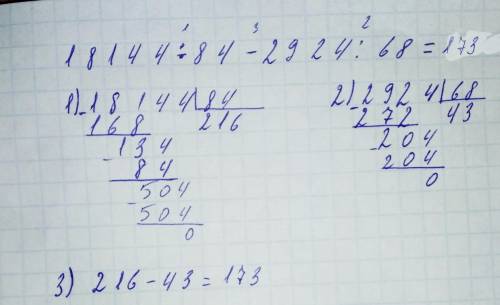 1 3 2
18144 : 84 - 2924 : 68 = 173
1) 18144 | 84
168 216
134
84
504
504
0
2) 2924 | 68
272 43
204
204
0
3) 216 - 43 = 173